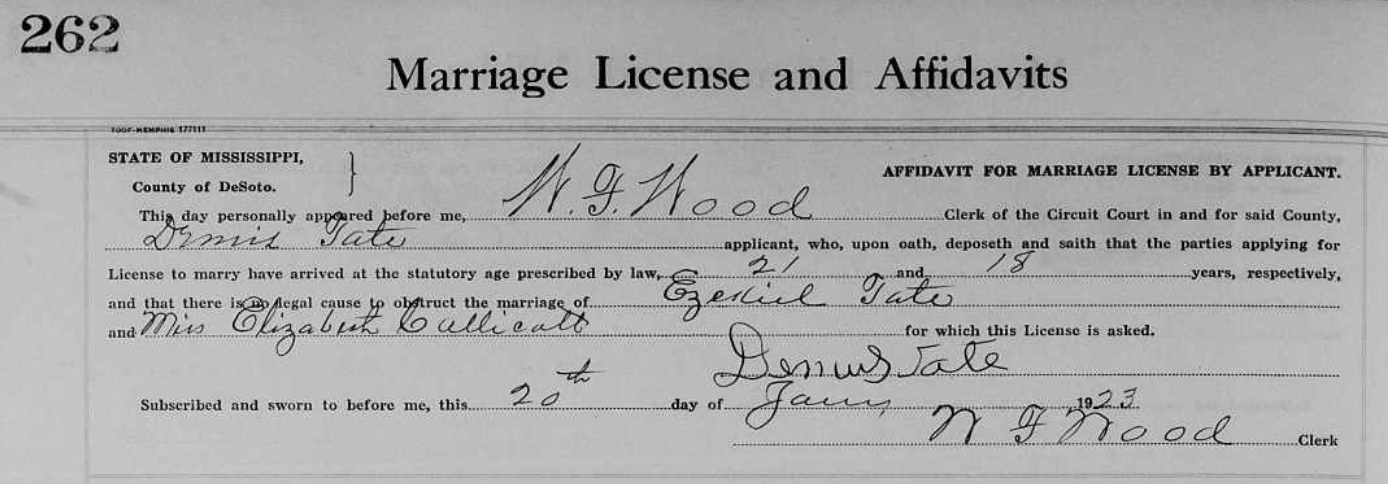 262
Marriage License and Affidavits
TOOF-MEMPHIS 177111
STATE OF MISSISSIPPI,
County of DeSoto.
AFFIDAVIT FOR MARRIAGE LICENSE BY APPLICANT.
This day personally appeared before me, W. F. Wood Clerk of the Circuit Court in and for said County,
Dennis Tate applicant, who, upon oath, deposeth and saith that the parties applying for
License to marry have arrived at the statutory age prescribed by law, 21 and 18 years, respectively,
and that there is no legal cause to obstruct the marriage of Ezekiel Tate
and Miss Elizabeth Callicott for which this License is asked.
Dennis Tate
Subscribed and sworn to before me, this 20th day of Jany 1923
W F Wood Clerk